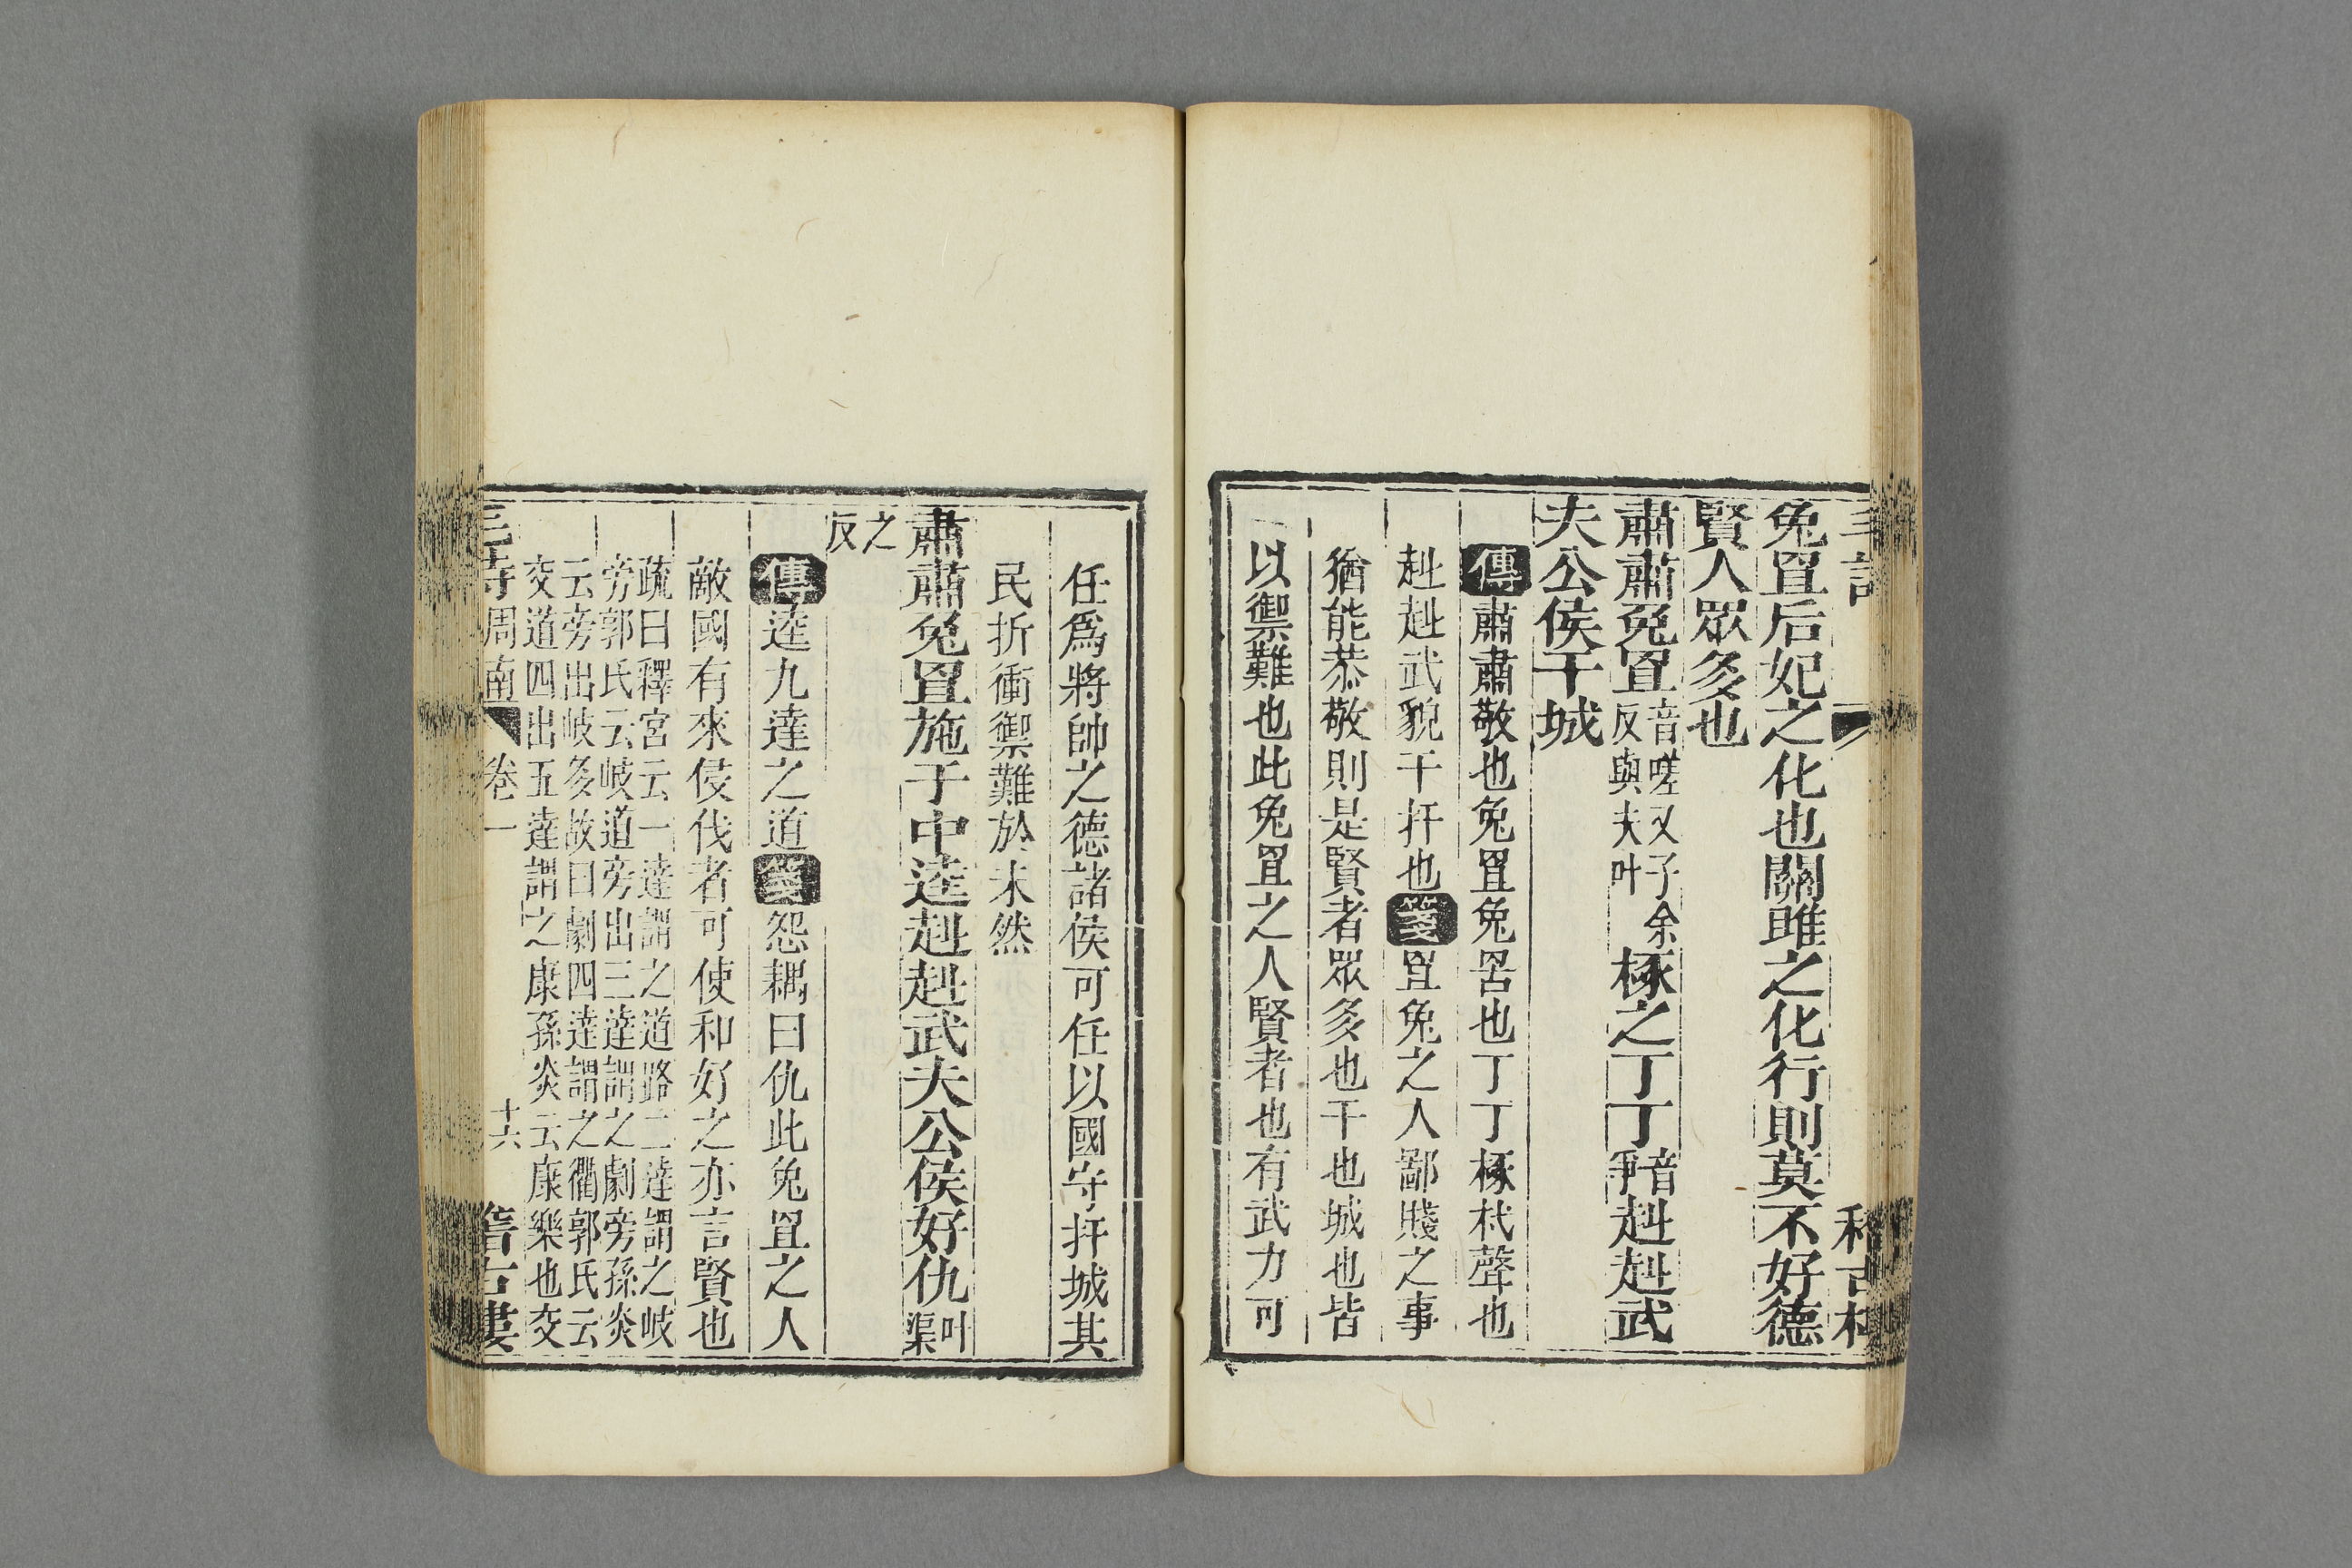 兔罝后妃之化也關雎之化行則莫不好德
賢人眾多也
肅肅兔罝音嗟又子余反與夫叶椓之丁丁音爭赳赳武
夫公侯干城
傳肅肅敬也兔罝兔罟也丁丁椓杙聲也
赳赳武貌干扞也箋罝兔之人鄙賤之事
猶能恭敬則是賢者眾多也干也城也皆
以禦難也此兔罝之人賢者也有武力可
任爲將帥之德諸侯可任以國守扞城其
民折衝禦難於未然
肅肅兔罝施于中逵赳赳武夫公侯好仇叶渠
之反
傳逵九達之道箋怨耦曰仇此兔罝之人
敵國有來侵伐者可使和好之亦言賢也
疏曰釋宮云一達謂之道路二達謂之岐
旁郭氏云岐道旁出三達謂之劇旁孫炎
云旁出岐多故曰劇四達謂之衢郭氏云
交道四出五達謂之康孫炎云康樂也交
毛詩周南 卷一 十六